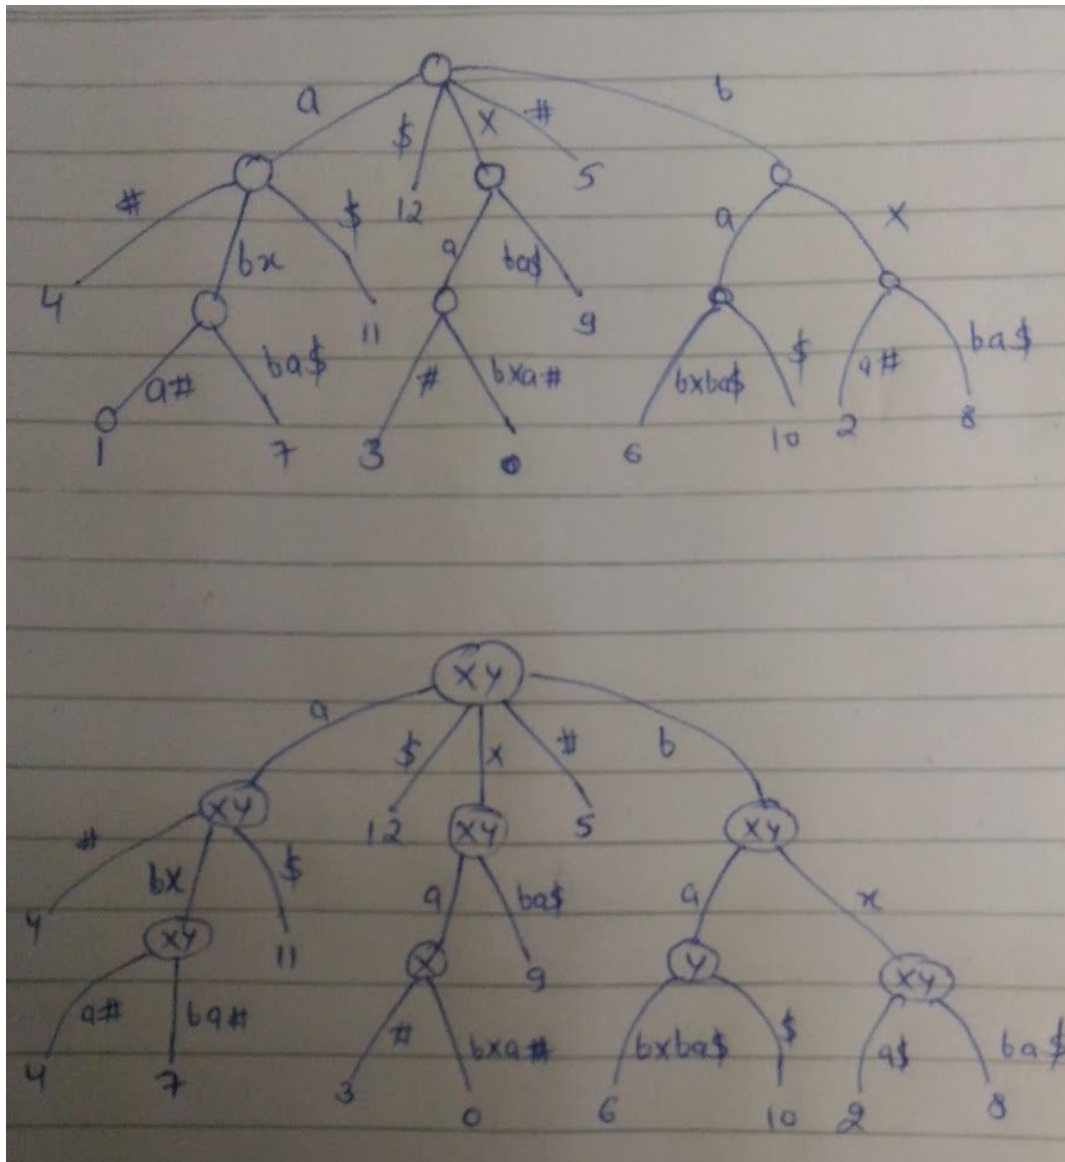 a $ x # b
# bx $ 12 a ba$ 5 a x
4 a# ba$ 11 # bxa# 9 bxba$ $ a# ba$
1 7 3 0 6 10 2 8
XY
a $ x # b
XY 12 XY 5 XY
# bx $ a ba$ a x
4 XY 11 X 9 Y XY
a# ba# # bxa# bxba$ $ a$ ba$
4 7 3 0 6 10 2 8